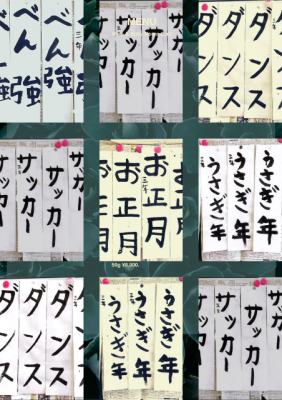 MENU
べん強
べん強
べん強
三年
サッカー
サッカー
サッカー
ダンス
ダンス
ダンス
サッカー
サッカー
サッカー
お正月
お正月
お正月
三年
うさぎ年
うさぎ年
うさぎ年
50g ¥8,300.
ダンス
ダンス
ダンス
うさぎ年
うさぎ年
うさぎ年
サッカー
サッカー
サッカー